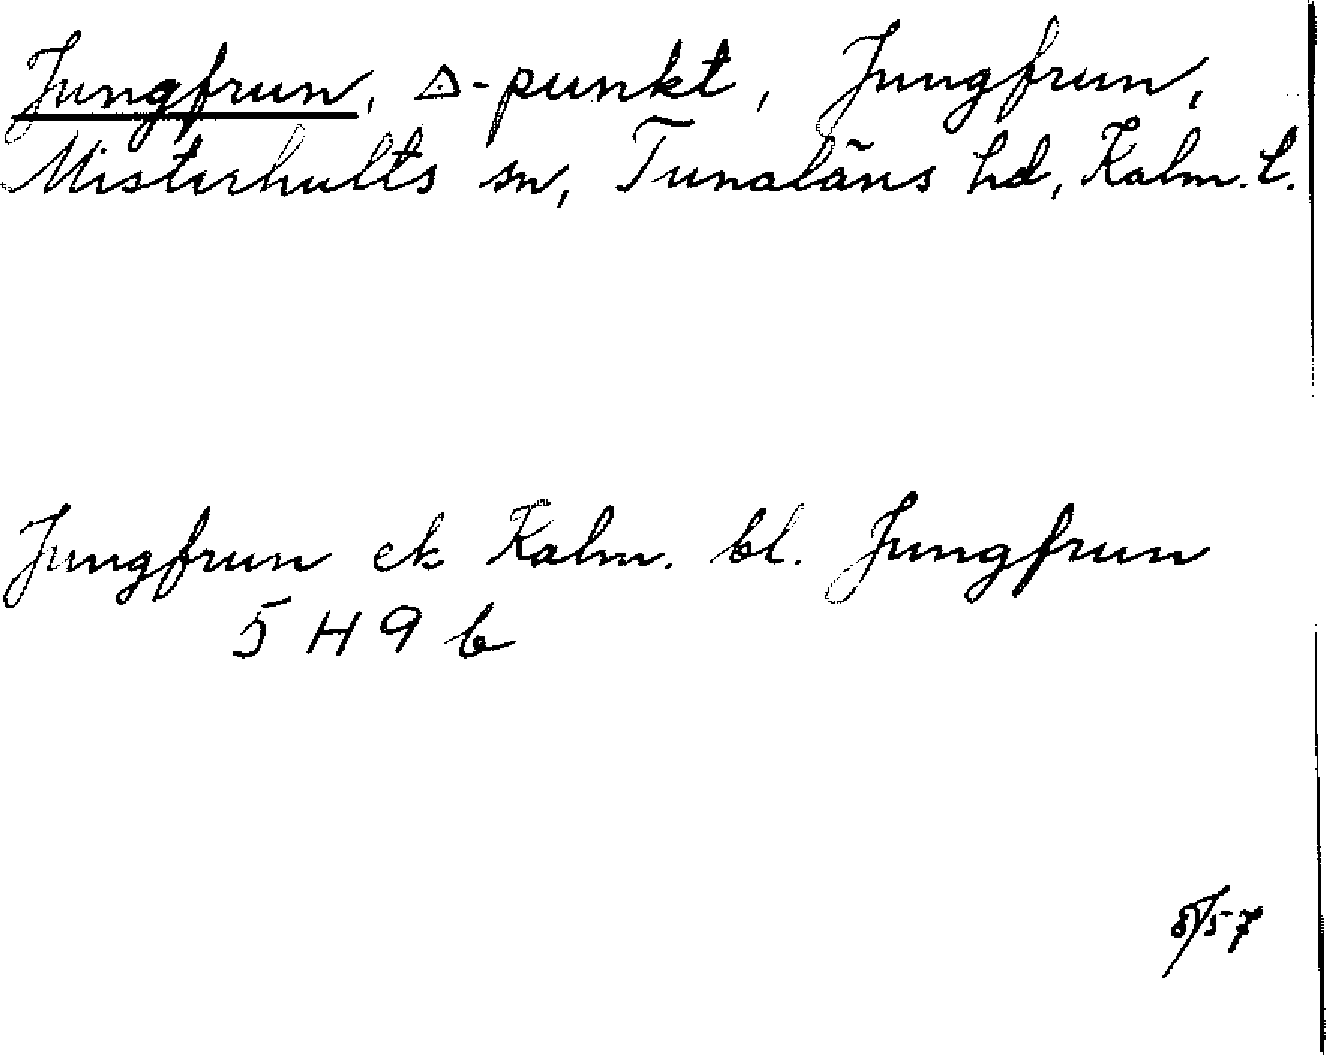 Jungfrun, △-punkt, Jungfrun,
Misterhults sn, Tunaläns hd, Kalm. l.
Jungfrun ek Kalm. bl. Jungfrun
5 H 9 b